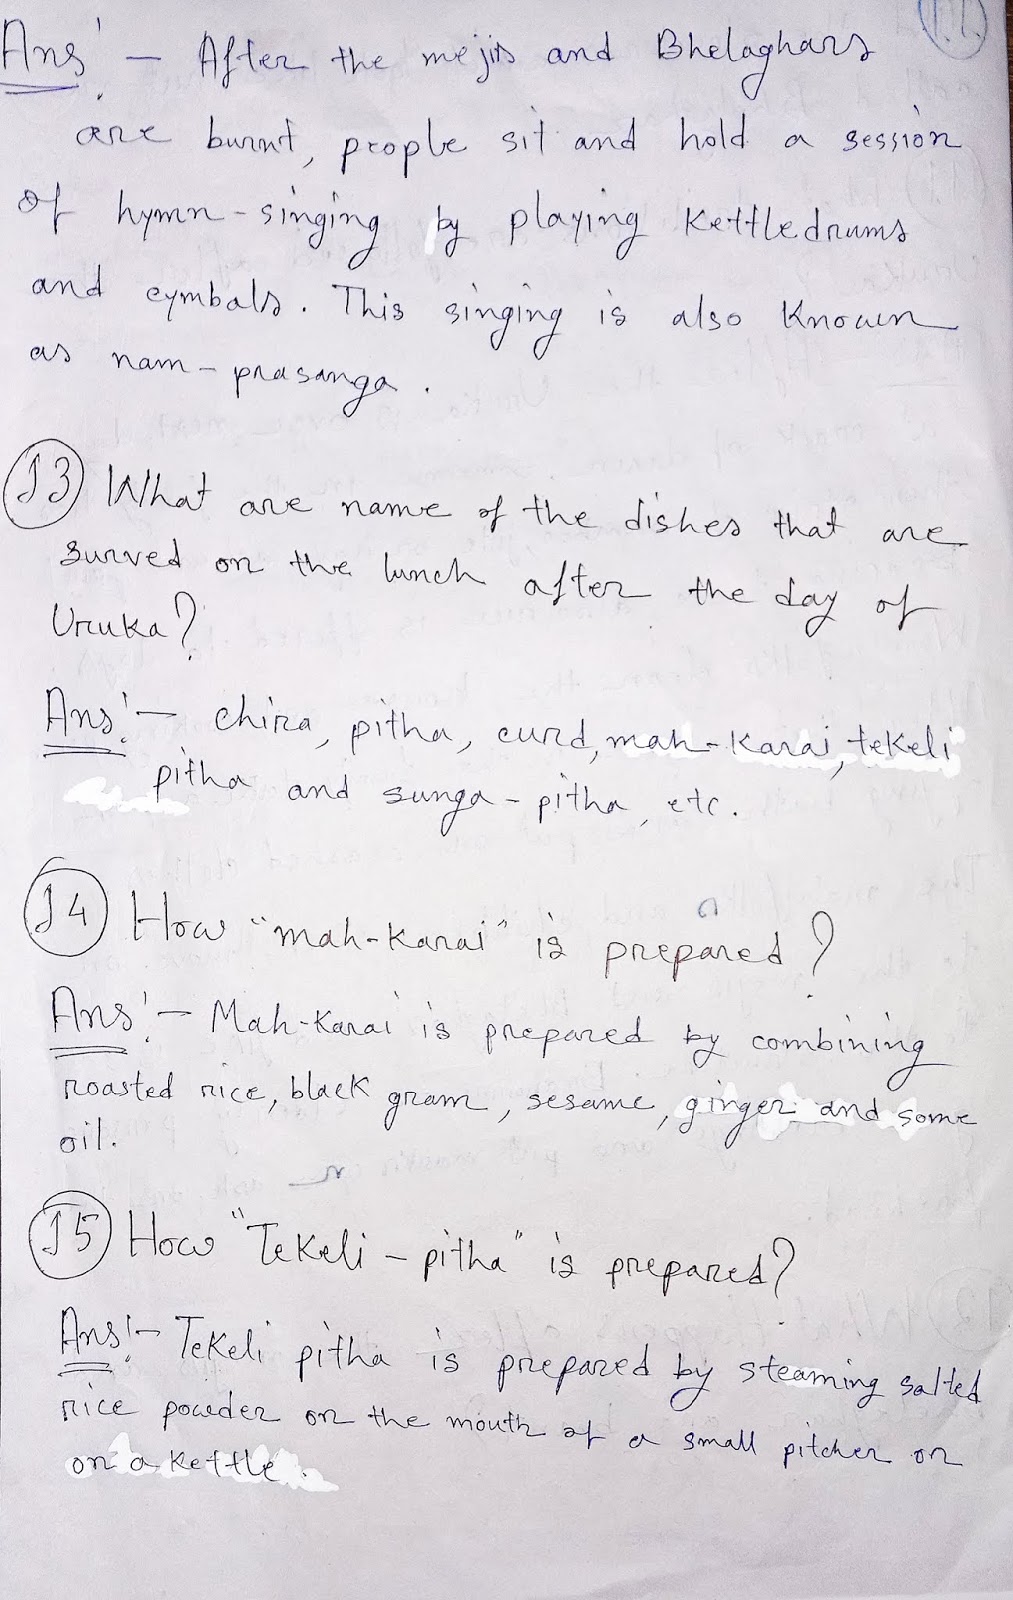 Ans!- After the mejis and Bhelaghars
are burnt, people sit and hold a session
of hymn-singing by playing kettledrums
and cymbals. This singing is also known
as nam-prasanga.
13 What are name of the dishes that are
surved on the lunch after the day of
Uruka?
Ans!- chira, pitha, curd, mah-karai, tekeli
pitha and sunga-pitha, etc.
14 How "mah-karai" is prepared?
Ans!- Mah-karai is prepared by combining
roasted rice, black gram, sesame, ginger and some
oil.
15 How "Tekeli-pitha" is prepared?
Ans!- Tekeli pitha is prepared by steaming salted
rice powder on the mouth of a small pitcher or
on a kettle.